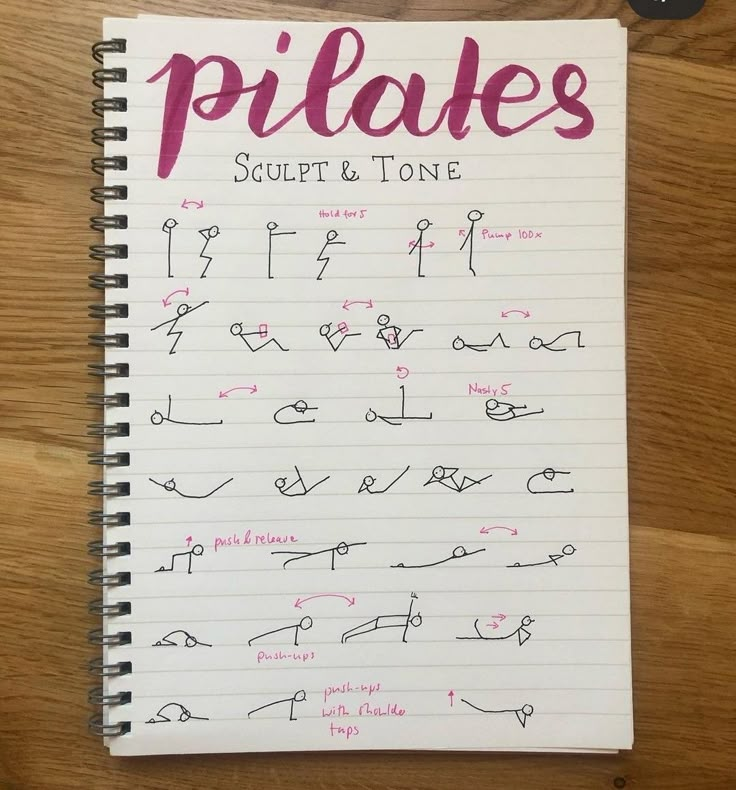 pilates
SCULPT & TONE
Hold for 5
Pump 100x
Nasty 5
push & release
push-ups
push-ups
with shoulder
taps